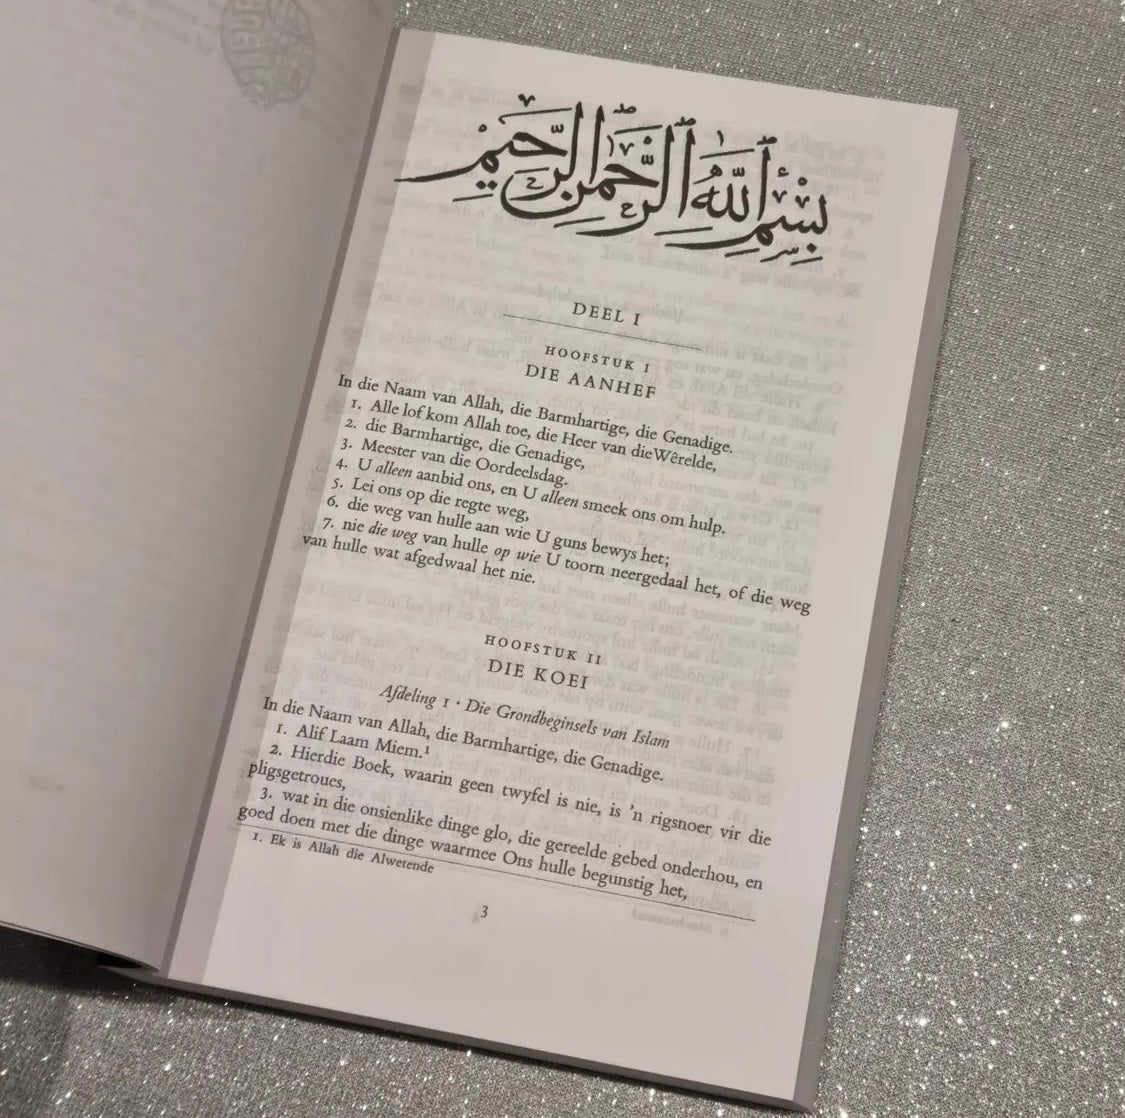 بِسْمِ اللَّهِ الرَّحْمَٰنِ الرَّحِيمِ
DEEL I
HOOFSTUK I
DIE AANHEF
In die Naam van Allah, die Barmhartige, die Genadige.
1. Alle lof kom Allah toe, die Heer van die Wêrelde,
2. die Barmhartige, die Genadige,
3. Meester van die Oordeelsdag.
4. U alleen aanbid ons, en U alleen smeek ons om hulp.
5. Lei ons op die regte weg,
6. die weg van hulle aan wie U guns bewys het;
7. nie die weg van hulle op wie U toorn neergedaal het, of die weg
van hulle wat afgedwaal het nie.
HOOFSTUK II
DIE KOEI
Afdeling 1 · Die Grondbeginsels van Islam
In die Naam van Allah, die Barmhartige, die Genadige.
1. Alif Laam Miem.¹
2. Hierdie Boek, waarin geen twyfel is nie, is 'n rigsnoer vir die
pligsgetroues,
3. wat in die onsienlike dinge glo, die gereelde gebed onderhou, en
goed doen met die dinge waarmee Ons hulle begunstig het,
1. Ek is Allah die Alwetende
3